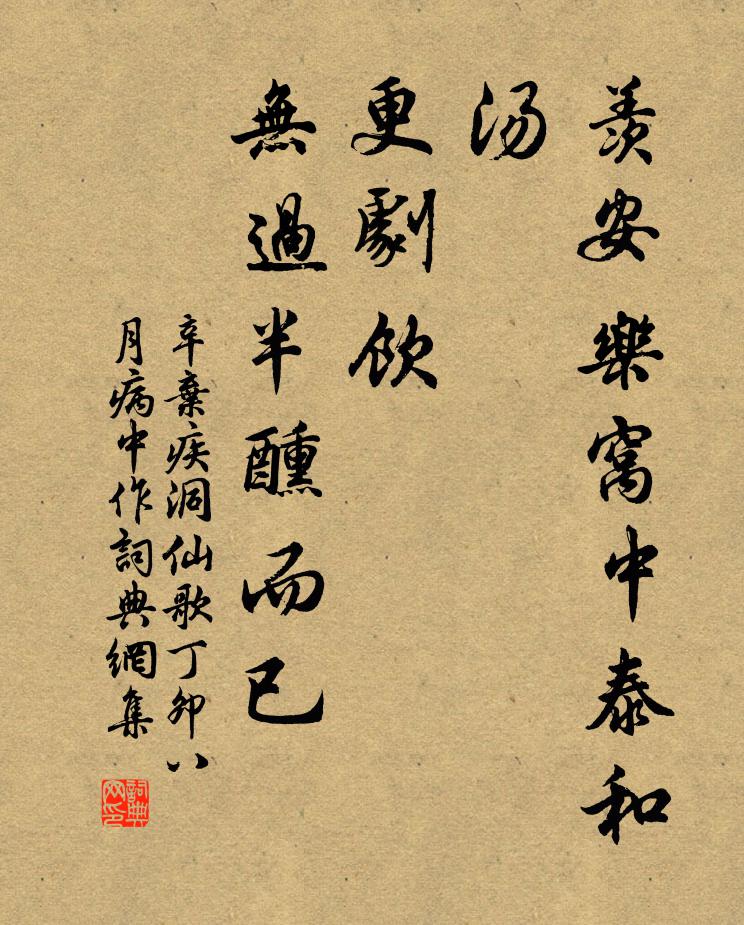 羨安樂窩中泰和
湯
更劇飲
無過半醺而已
辛棄疾洞仙歌丁卯八
月病中作詞典網集
詞典
网印